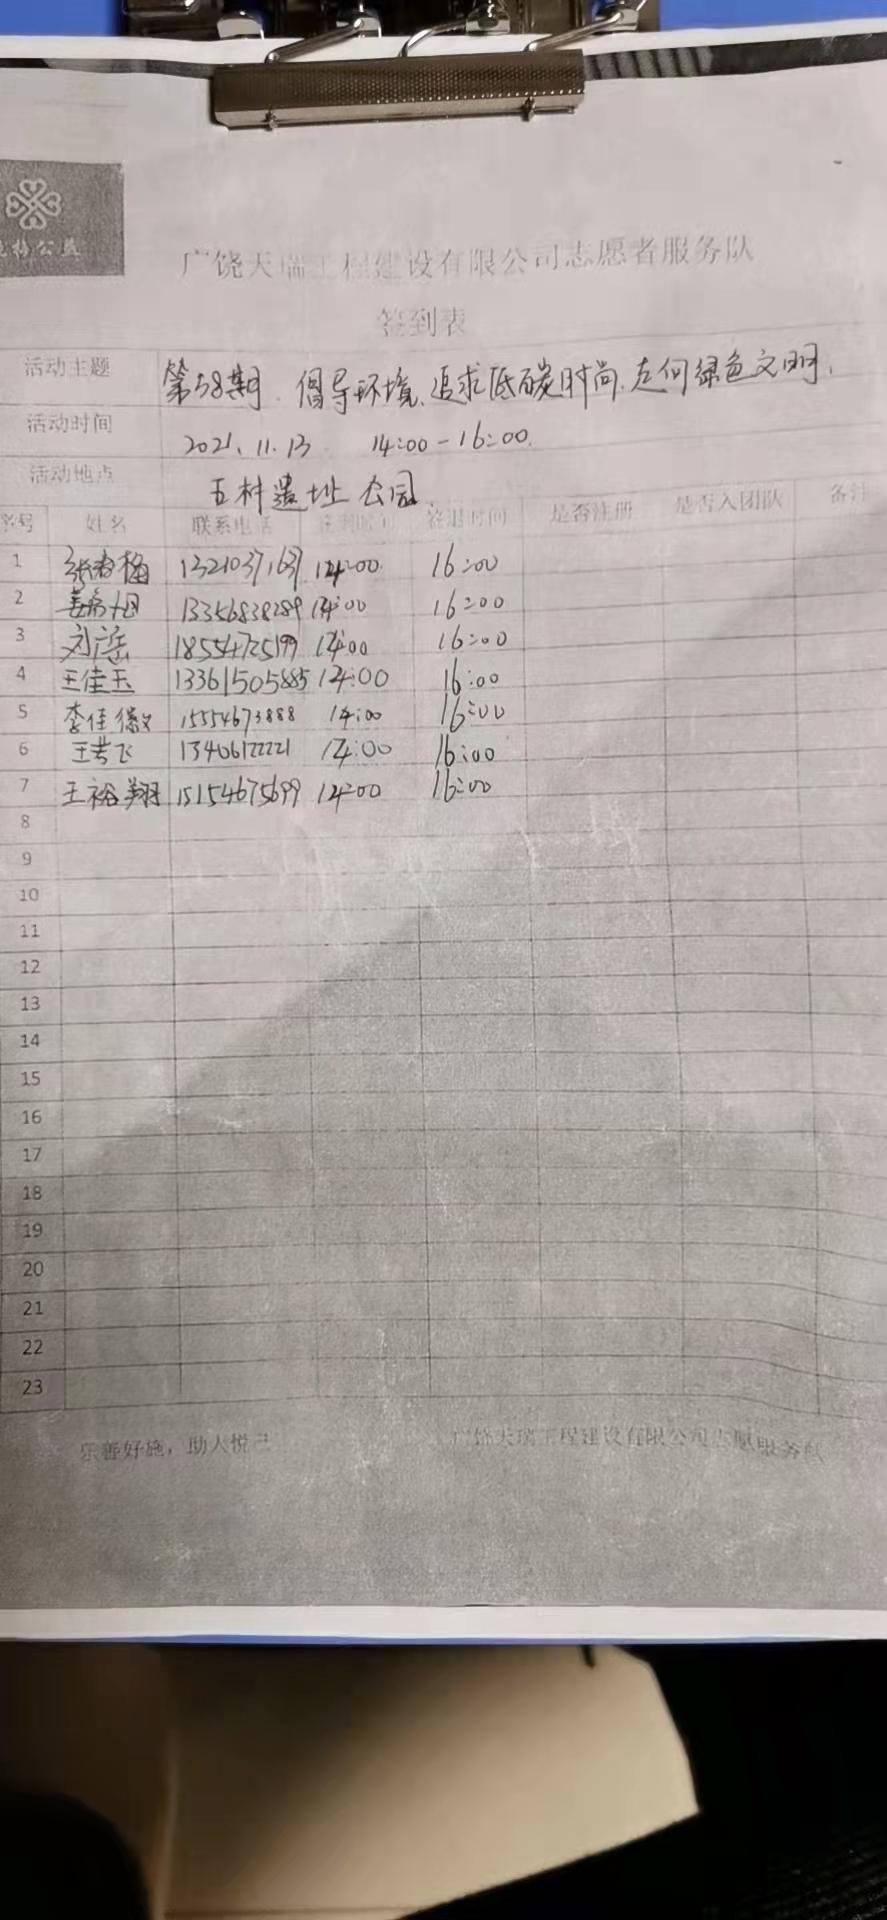 公益
广饶天瑞工程建设有限公司志愿者服务队
签到表
活动主题 第58期. 倡导环境、追求低碳时尚、走向绿色文明.
活动时间 2021.11.13 14:00-16:00.
活动地点 五村遗址公园.
序号 姓名 联系电话 签到时间 签退时间 是否注册 是否入团队 备注
1 张春梅 14:00 16:00
2 13356838289 14:00 16:00
3 18554725199 14:00 16:00
4 王佳玉 13361505885 14:00 16:00
5 李佳 15554673888 14:00 16:00
6 13406122221 14:00 16:00
7 王裕翔 15154675699 14:00 16:00
8
9
10
11
12
13
14
15
16
17
18
19
20
21
22
23
乐善好施，助人悦己 广饶天瑞工程建设有限公司志愿服务队